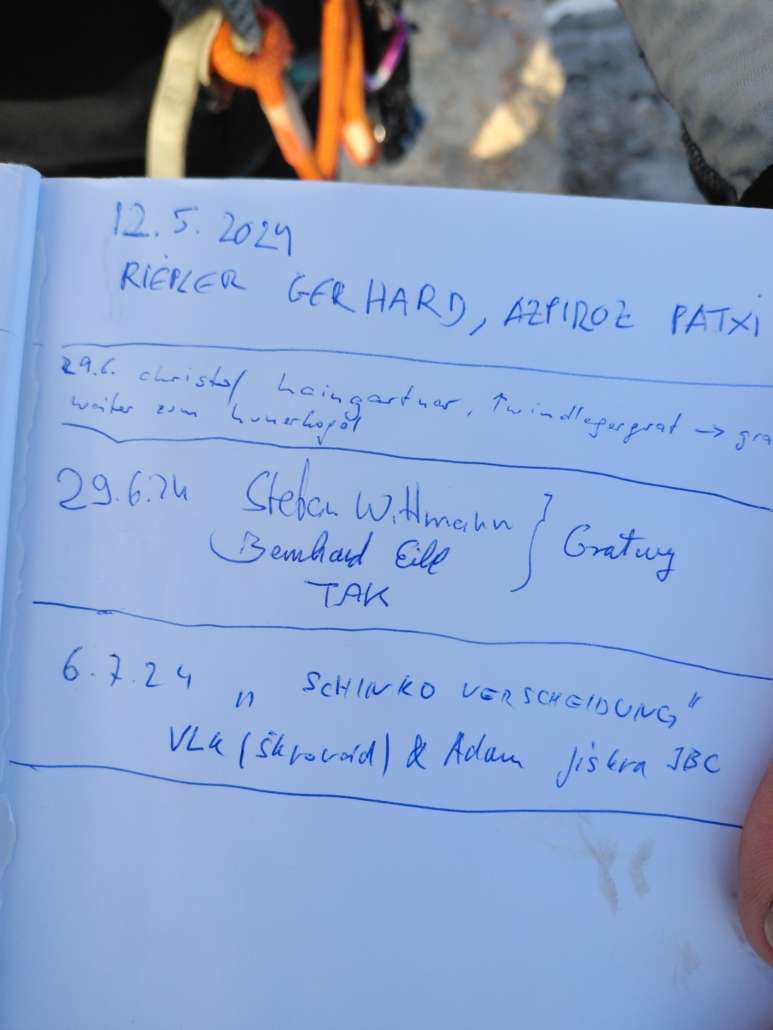 12.5.2024
RIEPLER GERHARD, AZPIROZ PATXI
29.6. christof haingartner, ↑windlegergrat → gra
weiter zum hunerkogel
29.6.24 Stefan Wittmann
Bernhard Eill } Gratweg
TAK
6.7.24 „SCHINKO VERSCHEIDUNG"
VLK (Škrovoid) & Adam Jiskra JBC